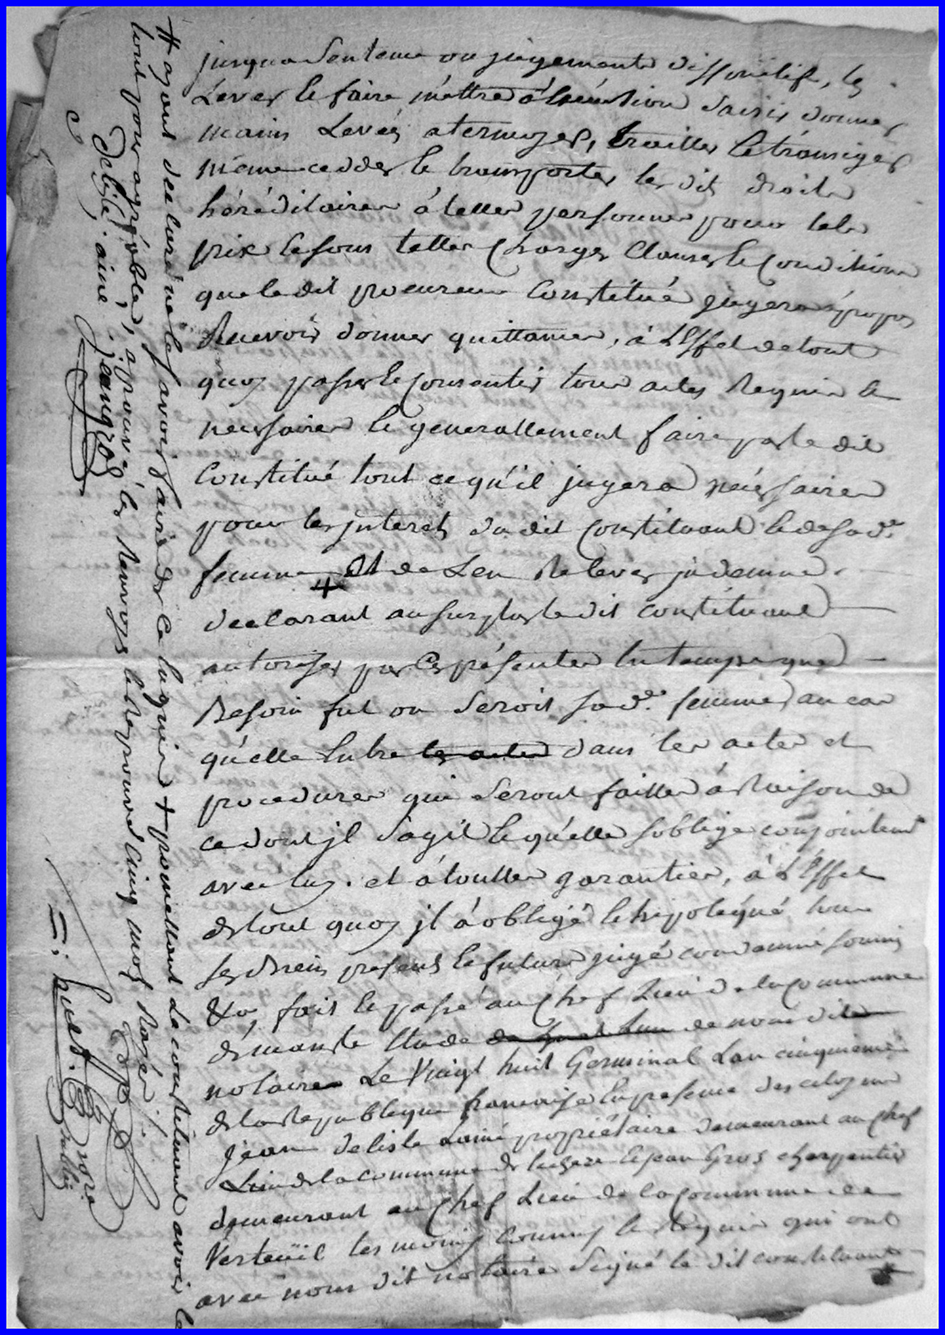 jusqua sentence ou jugements diffinitif, les
Lever & faire mettre à Exécution saisir donner
mains Levées atermoyer, traitter & transiger
même cedder & transporter les dits droits
héréditaires à telles personnes pour tels
prix & sous telles Charges Clauses & Conditions
que le dit procureur Constitué jugera àpropos
Recevoir donner quittances, à L'Effet de tout
quoy passer & consentir tous actes Requis &
nécessaires & generallement faire par le dit
Constitué tout ce qu'il jugera nécessaire
pour les jnterets du dit Constituant & de sa de.
femme # Et de L'en Relever jndemne.
declarant au surplus le dit constituant
autoriser par Ces présentes En temps que
Besoin fut ou seroit sa de. femme au cas
qu'elle Entre les actes dans les actes et
procedures qui seront faittes à Raison de
ce dont jl s'agit & qu'elle s'oblige conjointement
avec luy. et à touttes garanties, à L'Effet
de tout quoy jl à obligé & hipotequé tous
ses Biens presents & futurs jugé condamné soumis
&a, fait & passé au Chef Lieu de la commune
de Etude de nous dit
notaire Le Vingt huit Germinal L'an cinquieme
de la Republique francaise En presence des citoyens
Jean Delisle L'ainé propriétaire demeurant au chef
Lieu de la commune de & Jean Gros charpentier
demeurant au Chef Lieu de la Commune de
Verteüil tesmoins Connus & Requis qui ont
avec nous dit notaire signé & le dit constituant
# ayant declaré ne le savoir faire de ce Enquis + promettant Le constituant avoir le
tout pour agréable, aprouvé les Renvoys & Reprouvé Cinq mots Rayés.
Delisle ainé Jeangros